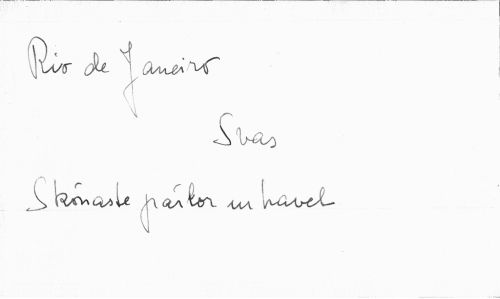 Rio de Janeiro
Svas
Skönaste pärlor ur havet